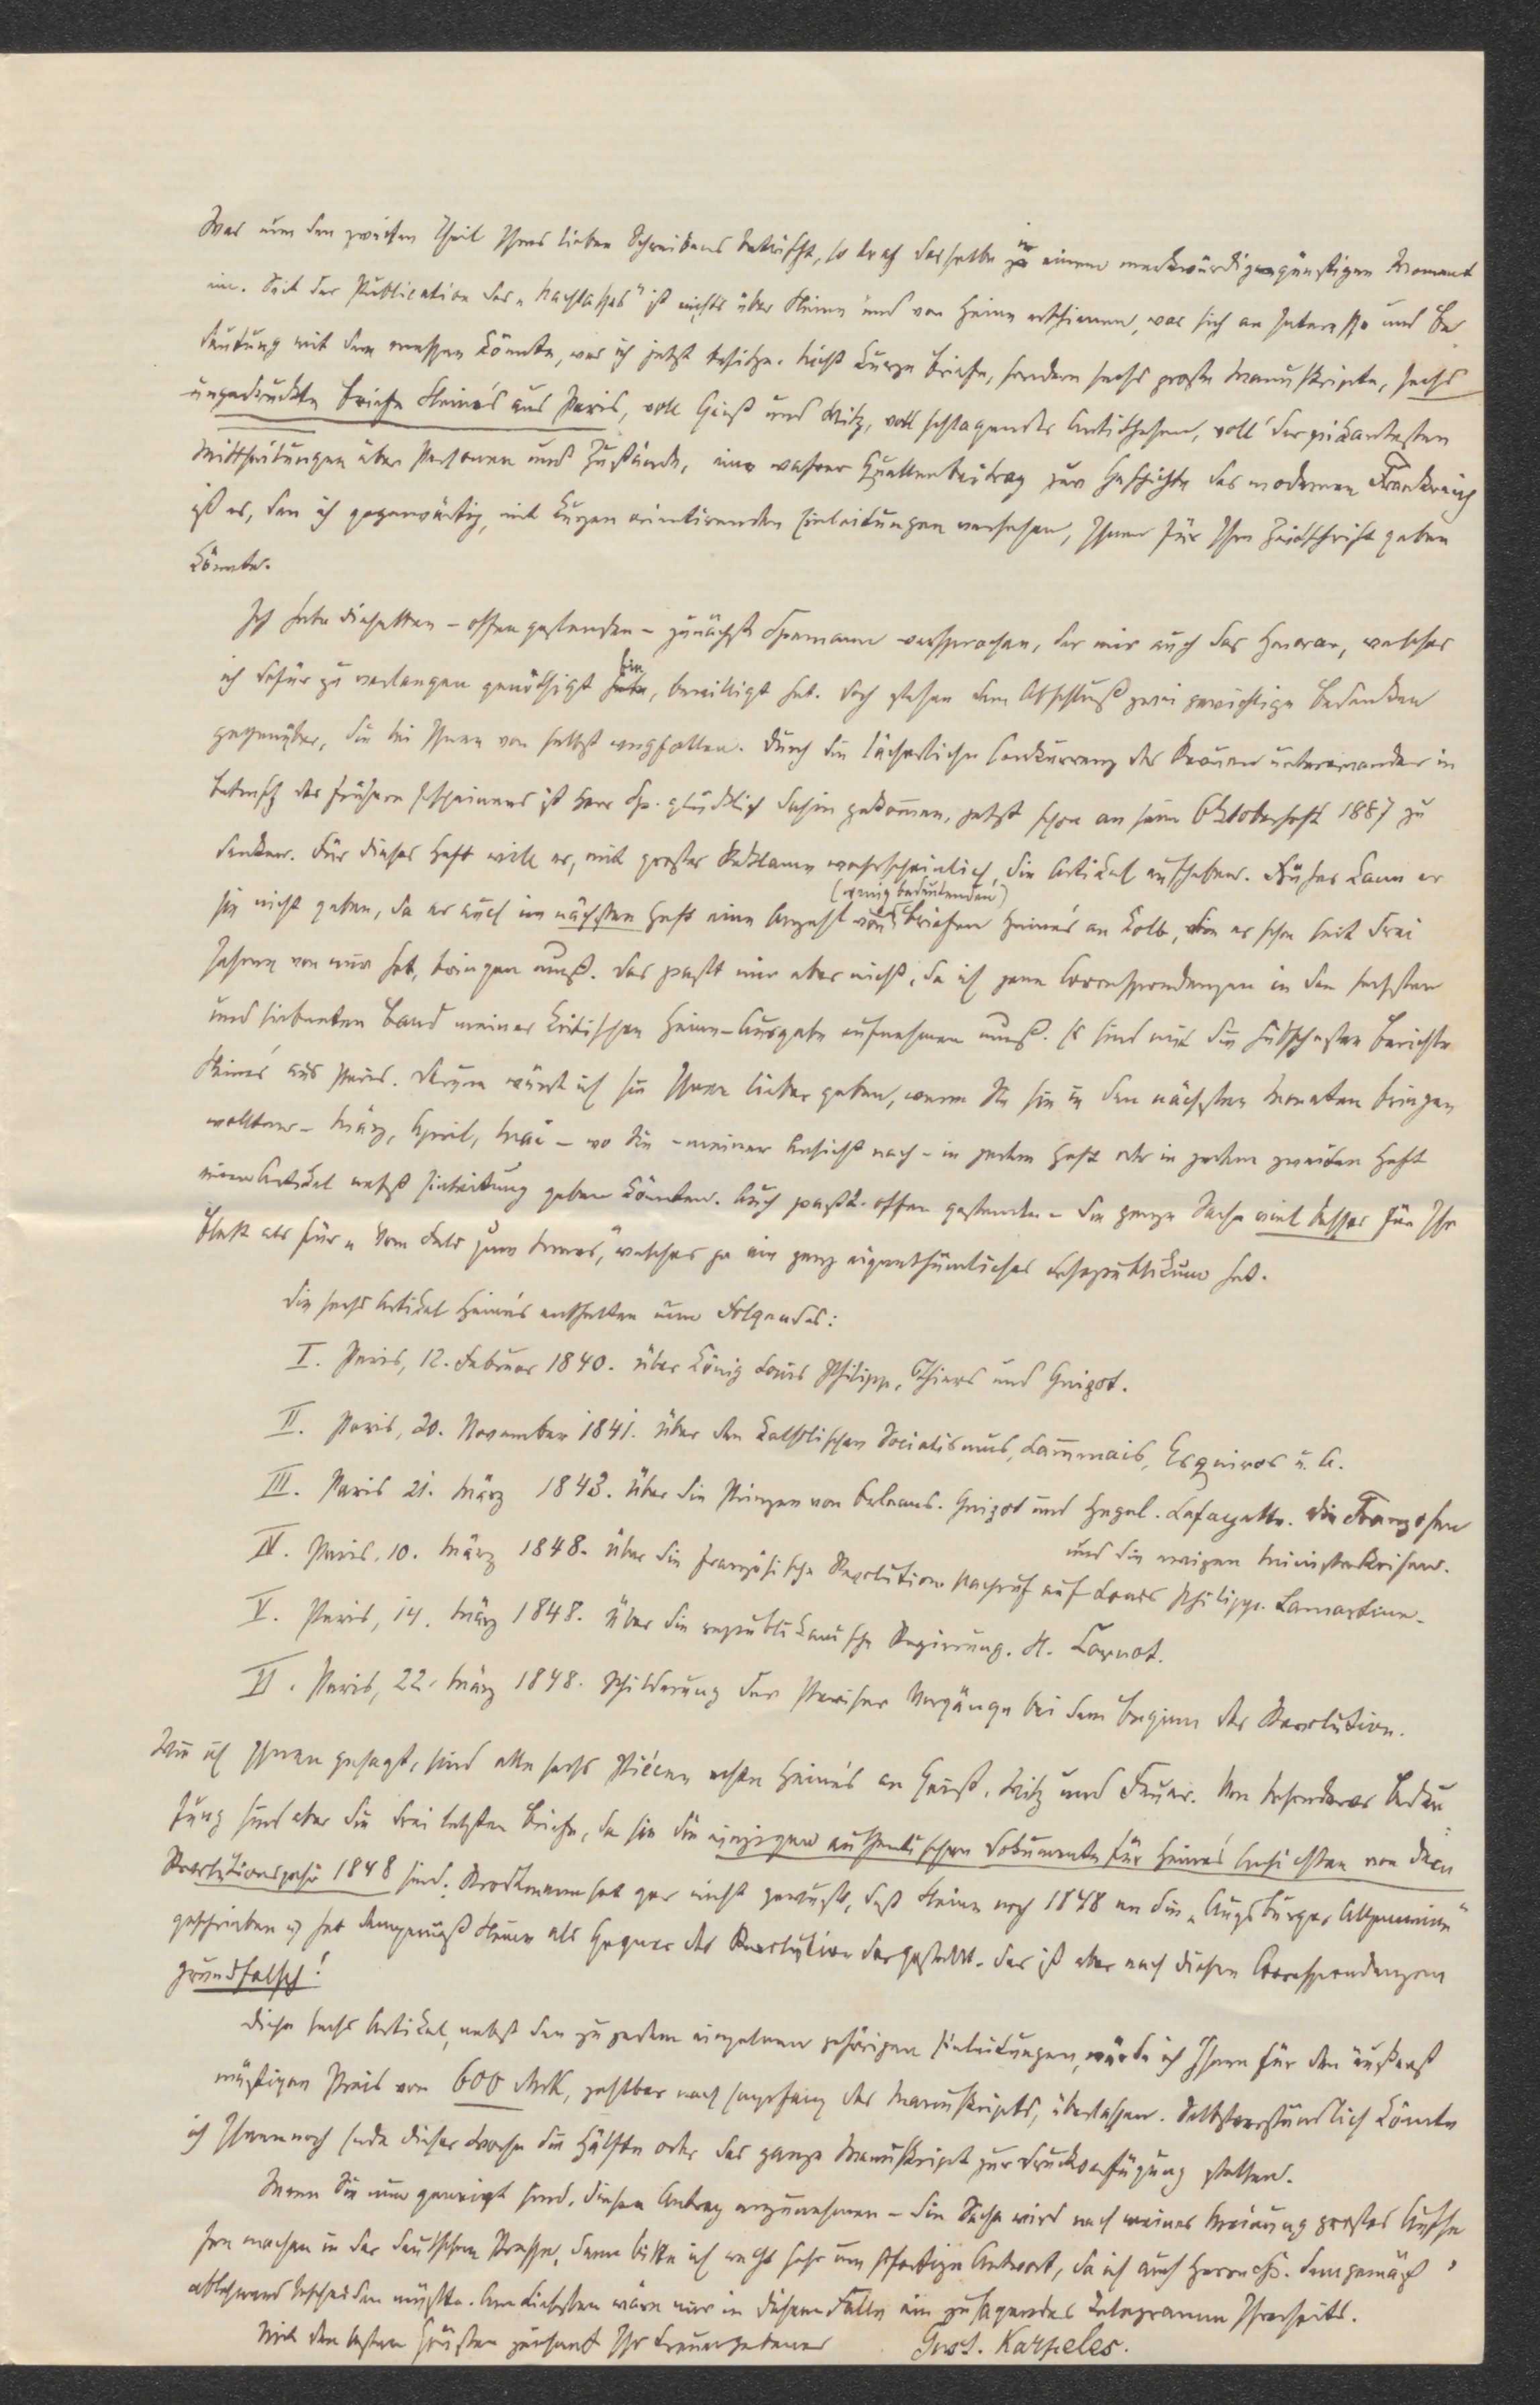 Was nun den zweiten Theil Ihres lieben Schreibens betrifft, so traf derselbe in einem merkwürdig günstigen Moment
ein. Seit der Publication des „Nachlasses" ist nichts über Heine und von Heine erschienen, was sich an Interesse und Be
deutung mit dem messen könnte, was ich jetzt besitze. Nicht kurze Briefe, sondern sechs große Manuskripte, sechs
ungedruckte Briefe Heine's aus Paris, voll Geist und Witz, voll schlagender Antithesen, voll der pikantesten
Mittheilungen über Personen und Zustände, ein wahrer Quellenbeitrag zur Geschichte des modernen Frankreich
ist es, den ich gegenwärtig, mit kurzen orientirenden Einleitungen versehen, Ihnen für Ihre Zeitschrift geben
könnte.
Ich habe dieselben – offen gestanden – zunächst Spemann versprochen, der mir auch das Honorar, welches
ich dafür zu verlangen genöthigt bin, bewilligt hat. Doch stehen dem Abschluß zwei gewichtige Bedenken
gegenüber, die bei Ihnen von selbst wegfallen. Durch die lächerliche Conkurrenz der Revuen untereinander in
Betreff des frühern Erscheinens ist Herr Sp. glücklich dahin gekommen, jetzt schon an sein Oktoberheft 1887 zu
denken. Für dieses Heft will er, mit großer Reklame wahrscheinlich, die Artikel aufheben. Früher kann er
sie nicht geben, da er auch im nächsten Heft eine Anzahl von (wenig bedeutenden) Briefen Heine's an Kolb, die er schon seit drei
Jahren von mir hat, bringen muß. Das paßt mir aber nicht, da ich jene Correspondenzen in den sechsten
und siebenten Band meiner kritischen Heine-Ausgabe aufnehmen muß. Es sind mit die hübschesten Berichte
Heine's aus Paris. Darum würde ich sie Ihnen lieber geben, wenn Sie sie in den nächsten Monaten bringen
wollten – März, April, Mai – wo Sie – meiner Ansicht nach – in jedem Heft oder in jedem zweiten Heft
einen Artikel nebst Einleitung geben könnten. Auch paßt – offen gestanden – die ganze Sache viel besser für Ihr
Blatt als für „Vom Fels zum Meer", welches ja ein ganz eigenthümliches Lesepublikum hat.
Die sechs Artikel Heine's enthalten nun Folgendes:
I. Paris, 12. Februar 1840. Über König Louis Philipp, Thiers und Guizot.
II. Paris, 20. November 1841. Über den katholischen Socialismus, Lammenais, Esquiros u. A.
III. Paris 21. März 1843. Über die Prinzen von Orleans. Guizot und Hegel. Lafayette. Die Franzosen
und die ewigen Ministerkrisen.
IV. Paris, 10. März 1848. Über die französische Revolution. Nachruf auf Louis Philipp. Lamartine.
V. Paris, 14. März 1848. Über die republikanische Regierung. H. Carnot.
VI. Paris, 22. März 1848. Schilderung der Pariser Vorgänge bei dem Beginn der Revolution.
Wie ich Ihnen gesagt, sind alle sechs Piécen echte Heine's an Geist, Witz und Feuer. Von besonderer Bedeu
tung sind aber die drei letzten Briefe, da sie die einzigen authentischen Dokumente für Heine's Ansichten von dem
Revolutionsjahr 1848 sind. Strodtmann hat gar nicht gewußt, daß Heine noch 1848 an die „Augsburger Allgemeine"
geschrieben u. hat demgemäß Heine als Gegner der Revolution dargestellt. Das ist aber nach diesen Correspondenzen
grundfalsch!
Diese sechs Artikel, nebst den zu jedem einzelnen gehörigen Einleitungen, würde ich Ihnen für den äußerst
mäßigen Preis von 600 Mrk, zahlbar nach Empfang des Manuskripts, überlassen. Selbstverständlich könnte
ich Ihnen noch Ende dieser Woche die Hälfte oder das ganze Manuskript zur Druckverfügung stellen.
Wenn Sie nun geneigt sind, diesen Antrag anzunehmen – die Sache wird nach meiner Meinung großes Aufse
hen machen in der deutschen Presse, dann bitte ich recht sehr um sofortige Antwort, da ich auch Herrn Sp. demgemäß
ablehnend bescheiden müßte. Am Liebsten wäre mir in diesem Falle ein zusagendes Telegramm Ihrerseits.
Mit den besten Grüßen zuhand Ihr treuergebener Gust. Karpeles.